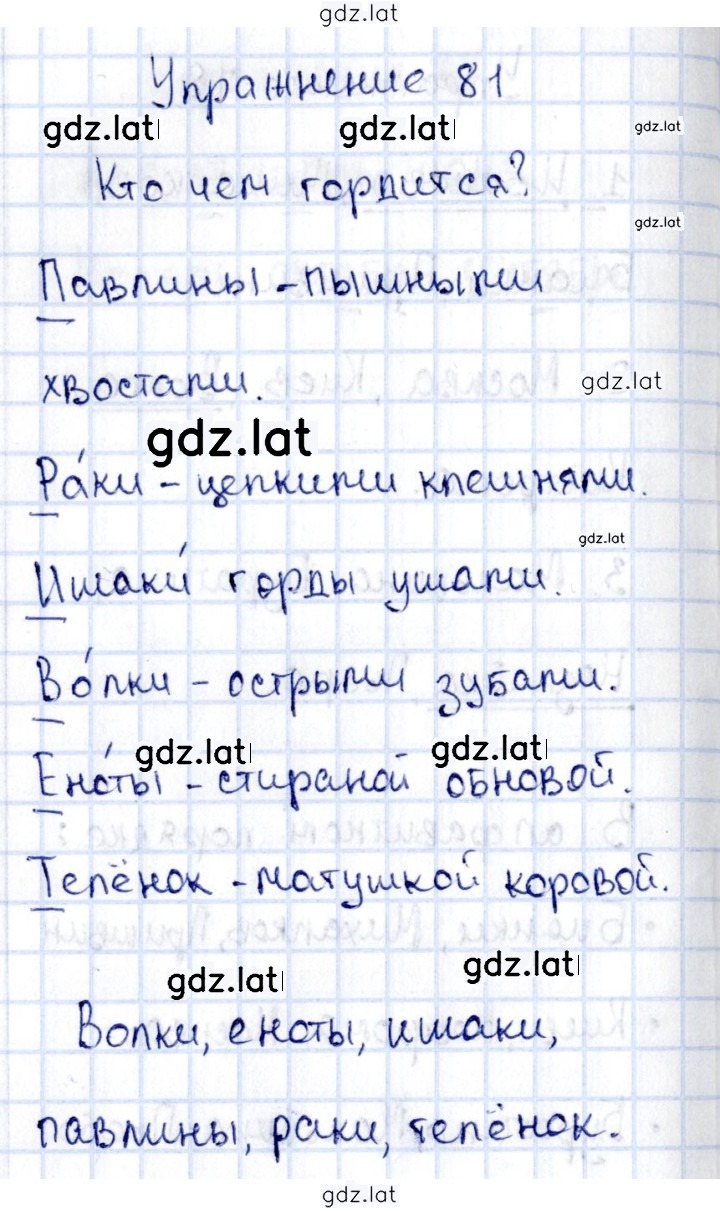 gdz.lat
Упражнение 81
gdz.lat gdz.lat gdz.lat
Кто чем гордится?
gdz.lat
Павлины - пышными
хвостами.
gdz.lat
gdz.lat
Ра́ки - цепкими клешнями.
gdz.lat
Ишаки́ горды ушами.
Во́лки - острыми зубами.
gdz.lat gdz.lat
Ено́ты - стираной обновой.
Телёнок - матушкой коровой.
gdz.lat gdz.lat
Волки, еноты, ишаки,
павлины, раки, телёнок.
gdz.lat